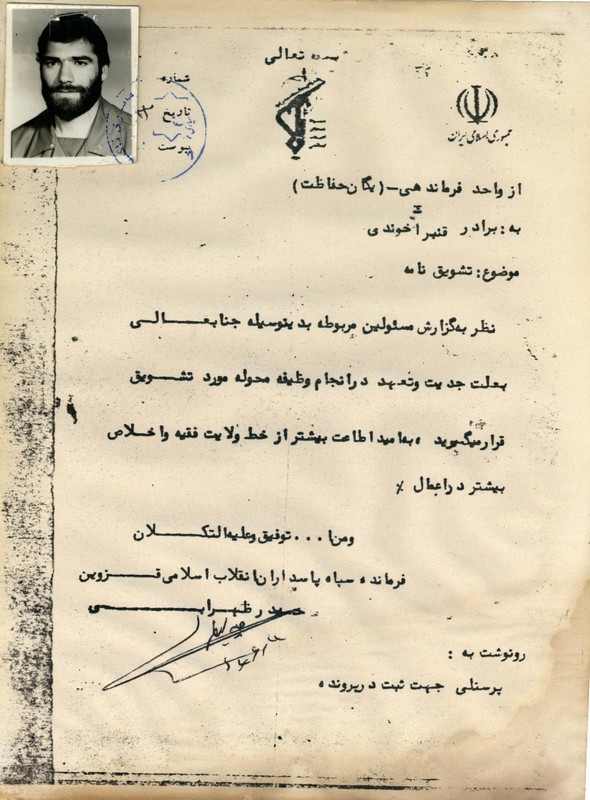 بسمه تعالی
شماره
تاریخ
پیوست
جمهوری اسلامی ایران
از واحد فرماندهی-(یگان حفاظت)
به: برادر قنبر آخوندی
موضوع: تشویق نامه
نظر به گزارش مسئولین مربوطه بدینوسیله جنابعالی
بعلت جدیت وتعهد در انجام وظیفه محوله مورد تشویق
قرار میگیرید ، به امید اطاعت بیشتر از خط ولایت فقیه واخلاص
بیشتر در اعمال ٪
ومن ا... توفیق وعلیه التکلان
فرمانده سپاه پاسداران انقلاب اسلامی قزوین
رونوشت به :
پرسنلی جهت ثبت در پرونده